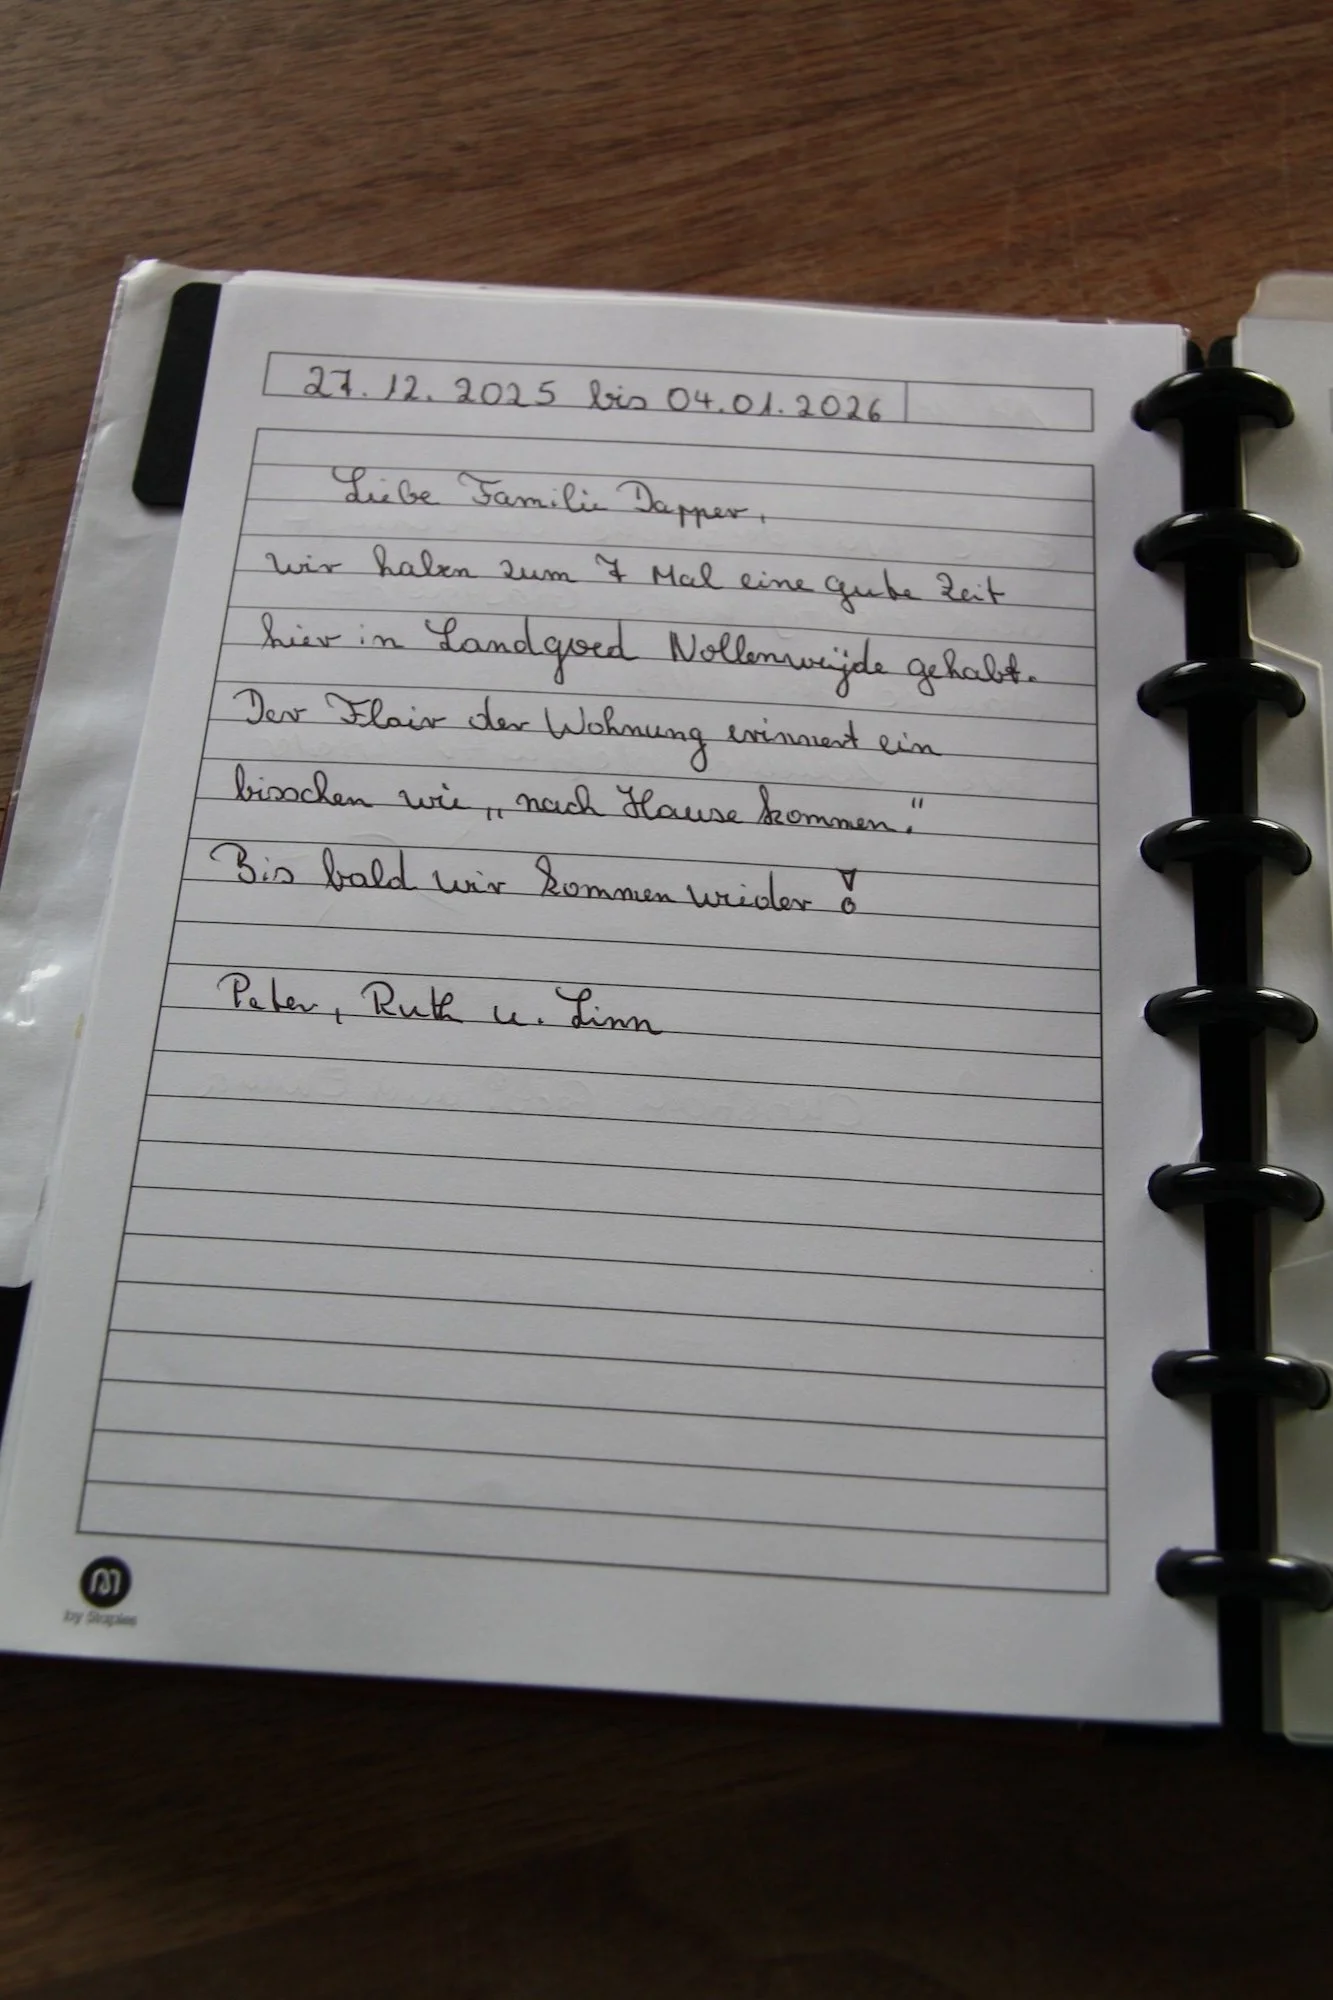 27.12.2025 bis 04.01.2026
Liebe Familie Dapper,
wir haben zum 7 Mal eine gute Zeit
hier in Landgoed Nollenweijde gehabt.
Der Flair der Wohnung erinnert ein
bisschen wie „nach Hause kommen."
Bis bald wir kommen wieder!
Peter, Ruth u. Linn
by Staples